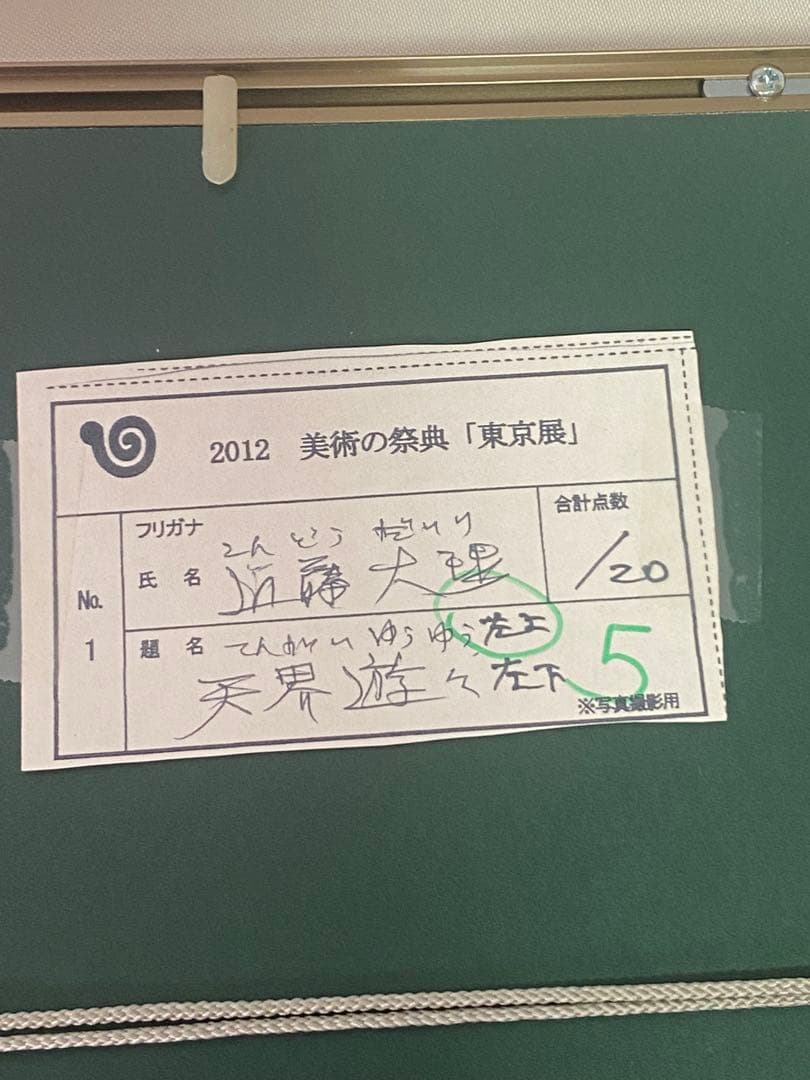 2012 美術の祭典「東京展」
フリガナ こんどう だいり
氏 名 近藤 大理
合計点数
/20
No.
1
題 名 てんかい ゆうゆう 左上
天界遊々 左下
5
※写真撮影用